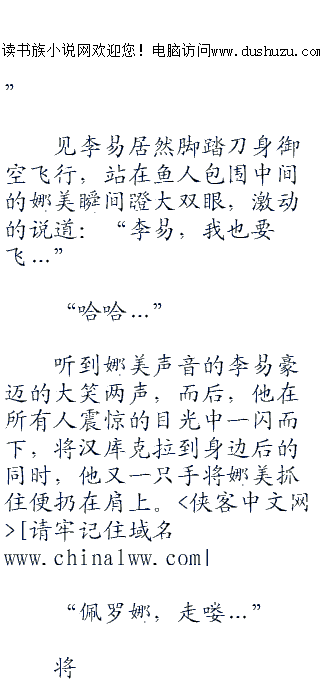 读书族小说网欢迎您！电脑访问www.dushuzu.com
”
见李易居然脚踏刀身御
空飞行，站在鱼人包围中间
的娜美瞬间蹬大双眼，激动
的说道：“李易，我也要
飞…”
“哈哈…”
听到娜美声音的李易豪
迈的大笑两声，而后，他在
所有人震惊的目光中一闪而
下，将汉库克拉到身边后的
同时，他又一只手将娜美抓
住便扔在肩上。<侠客中文网
>[请牢记住域名
www.china1ww.com|
“佩罗娜，走喽…”
将